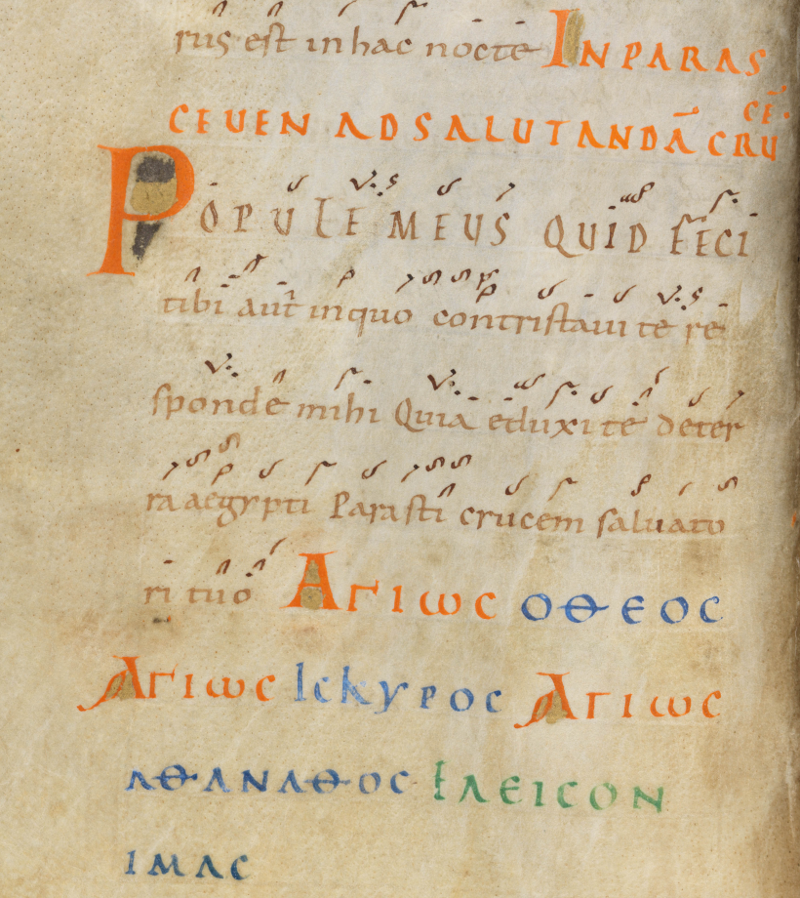 rus est in hac nocte IN PARAS
CEUEN AD SALUTANDĀ CRU
CĒ.
POPULE MEUS QUID FECI
tibi aut̄ in quo contristaui te re
sponde mihi Quia eduxi te de ter
ra aegypti Parasti crucem saluato
ri tuo ΑΓΙωC ΟΘΕΟC
ΑΓΙωC ICKYPOC ΑΓΙωC
ΑΘΑΝΑΘΟC ΕΛΕΙCΟΝ
ΙΜΑC